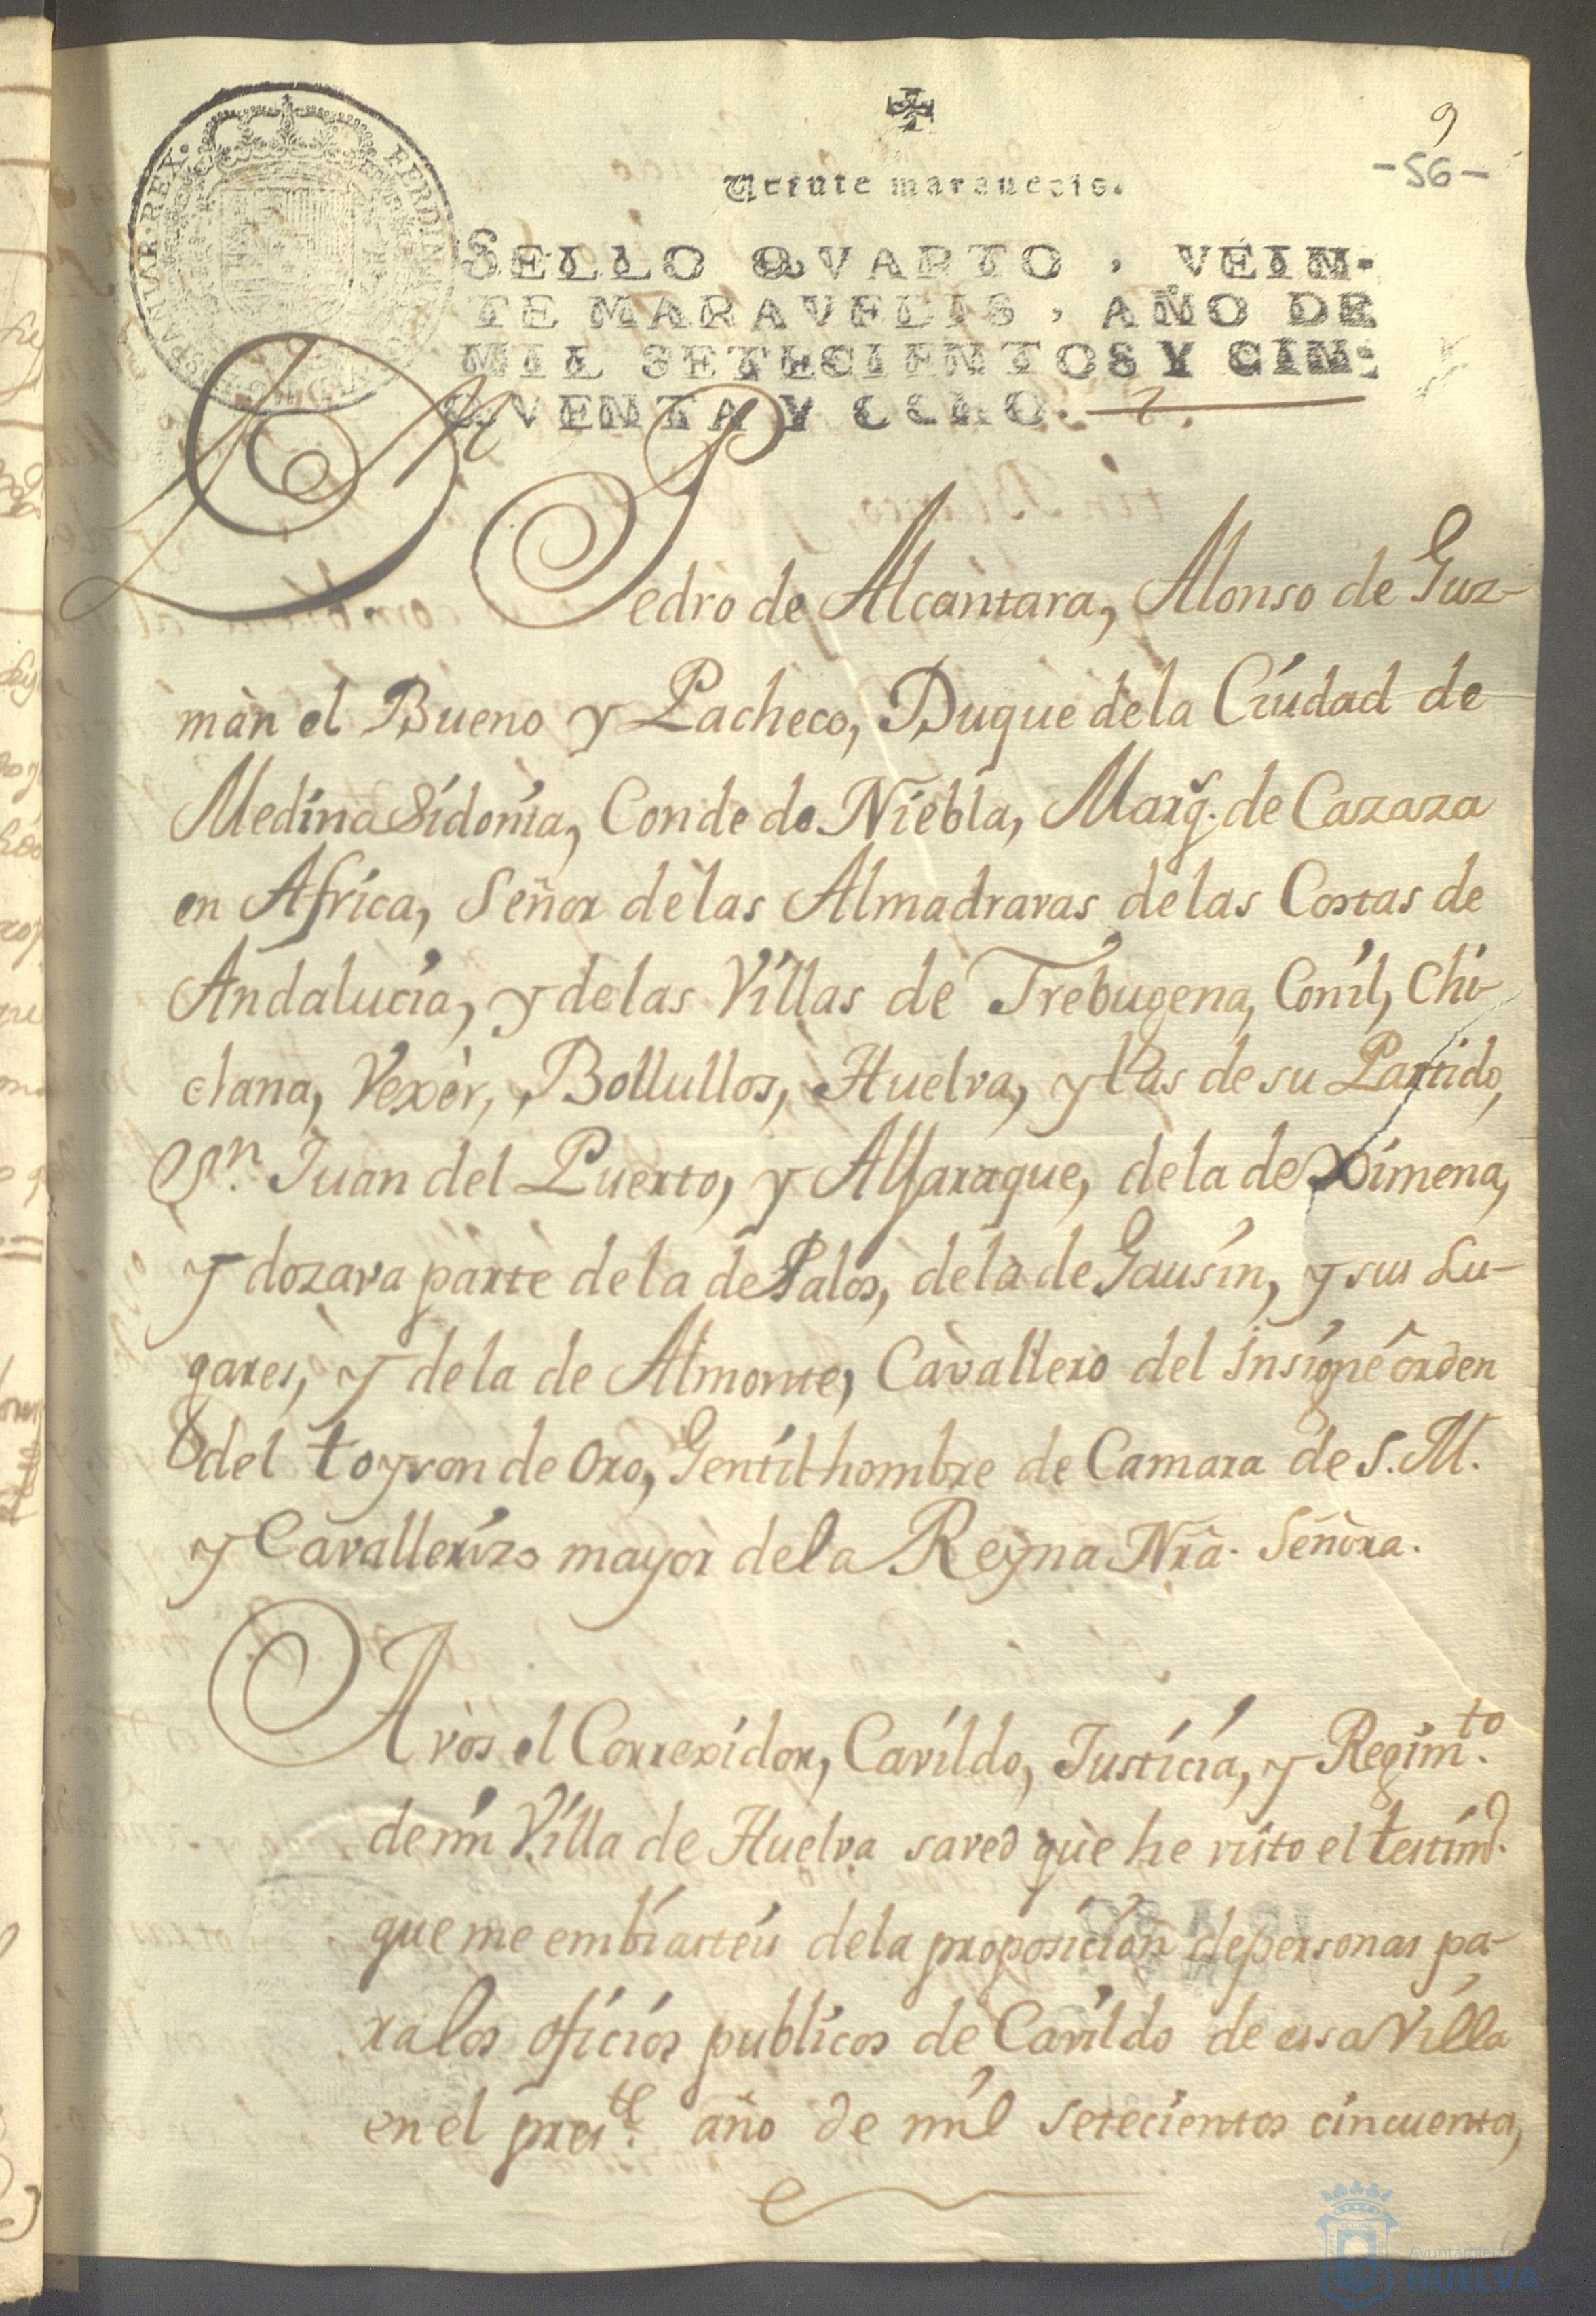 9
-56-
Veinte maravedis.
SELLO QVARTO, VEIN-
TE MARAVEDIS, AÑO DE
MIL SETECIENTOS Y CIN-
QVENTA Y OCHO.
HISPANIAR·REX·
FERDINAND
Dn Pedro de Alcantara, Alonso de Guz-
màn el Bueno y Pacheco, Duque de la Ciudad de
Medina Sidonia, Conde de Niebla, Marqs. de Cazaza
en Africa, Señor de las Almadravas de las Costas de
Andalucia, y de las Villas de Trebugena, Conil, Chi-
clana, Vexèr, Bollullos, Huelva, y las de su Partido,
Sn. Juan del Puerto, y Aljaraque, de la de Ximena,
y dozava parte de la de Palos, de la de Gausin, y sus Lu-
gares, y de la de Almonte, Cavallero del insigne orden
del toyson de Oro, Gentilhombre de Camara de S. M.
y Cavallerizo mayor de la Reyna Nrã. Señora.
A vòs el Correxidor, Cavildo, Justicia, y Regimto.
de mi Villa de Huelva saved què he visto el testimo.
que me embiasteis de la proposicion de personas pa-
ra los oficios publicos de Cavildo de essa Villa
en el preste. año de mil setecientos cincuenta,
Ayuntamiento
HUELVA